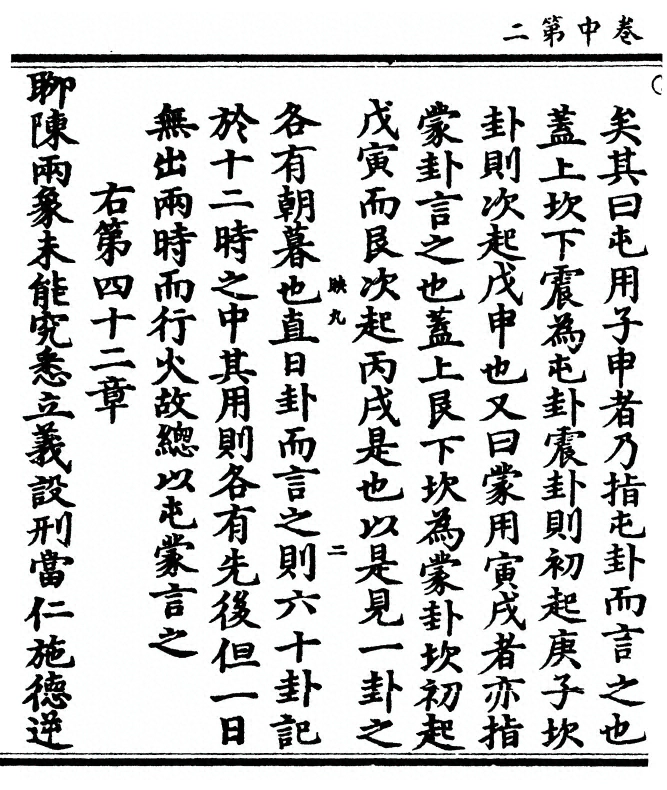 卷中第二
矣其曰屯用子申者乃指屯卦而言之也
蓋上坎下震為屯卦震卦則初起庚子坎
卦則次起戊申也又曰蒙用寅戌者亦指
蒙卦言之也蓋上艮下坎為蒙卦坎初起
戊寅而艮次起丙戌是也以是見一卦之
映九
二
各有朝暮也直日卦而言之則六十卦記
於十二時之中其用則各有先後但一日
無出兩時而行火故總以屯蒙言之
右第四十二章
聊陳兩象未能究悉立義設刑當仁施德逆